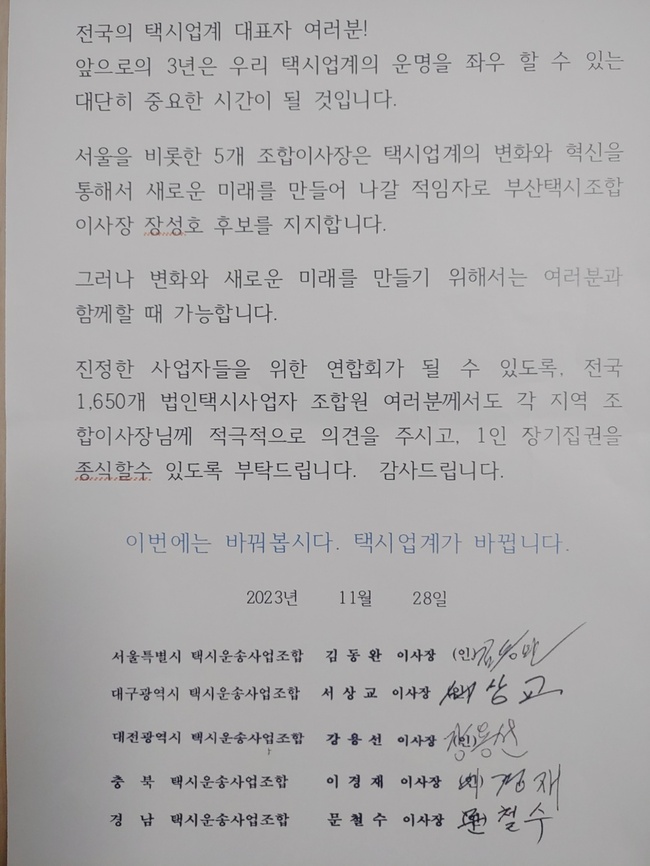 전국의 택시업계 대표자 여러분!
앞으로의 3년은 우리 택시업계의 운명을 좌우 할 수 있는
대단히 중요한 시간이 될 것입니다.
서울을 비롯한 5개 조합이사장은 택시업계의 변화와 혁신을
통해서 새로운 미래를 만들어 나갈 적임자로 부산택시조합
이사장 장성호 후보를 지지합니다.
그러나 변화와 새로운 미래를 만들기 위해서는 여러분과
함께할 때 가능합니다.
진정한 사업자들을 위한 연합회가 될 수 있도록, 전국
1,650개 법인택시사업자 조합원 여러분께서도 각 지역 조
합이사장님께 적극적으로 의견을 주시고, 1인 장기집권을
종식할수 있도록 부탁드립니다. 감사드립니다.
이번에는 바꿔봅시다. 택시업계가 바뀝니다.
2023년 11월 28일
서울특별시 택시운송사업조합 김동완 이사장 (인)
대구광역시 택시운송사업조합 서상교 이사장 서상교
대전광역시 택시운송사업조합 강용선 이사장 (인)강용선
충북 택시운송사업조합 이경재 이사장 이경재
경남 택시운송사업조합 문철수 이사장 문철수